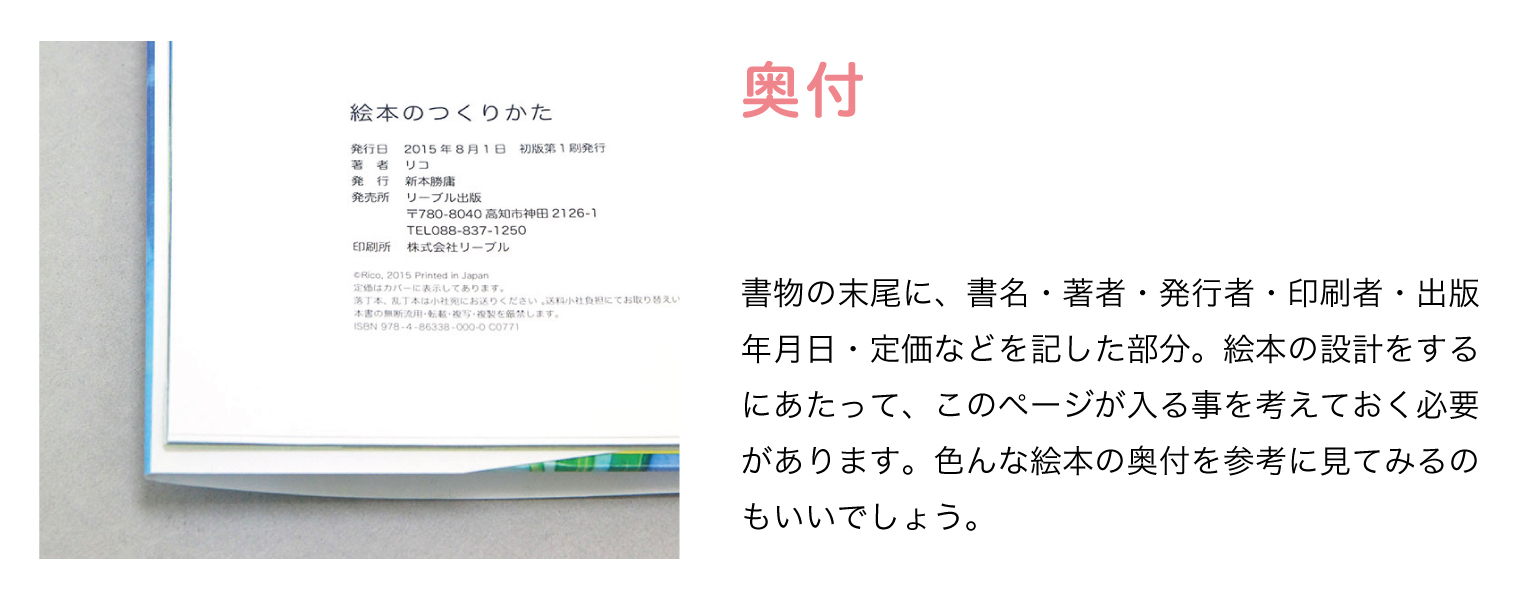 絵本のつくりかた
発行日 2015年8月1日 初版第1刷発行
著 者 リコ
発 行 新本勝庸
発売所 リーブル出版
〒780-8040 高知市神田2126-1
TEL088-837-1250
印刷所 株式会社リーブル
©Rico, 2015 Printed in Japan
定価はカバーに表示してあります。
落丁本、乱丁本は小社宛にお送りください。送料小社負担にてお取り替えい
本書の無断流用・転載・複写・複製を厳禁します。
ISBN 978-4-86338-000-0 C0771
奥付
書物の末尾に、書名・著者・発行者・印刷者・出版
年月日・定価などを記した部分。絵本の設計をする
にあたって、このページが入る事を考えておく必要
があります。色んな絵本の奥付を参考に見てみるの
もいいでしょう。